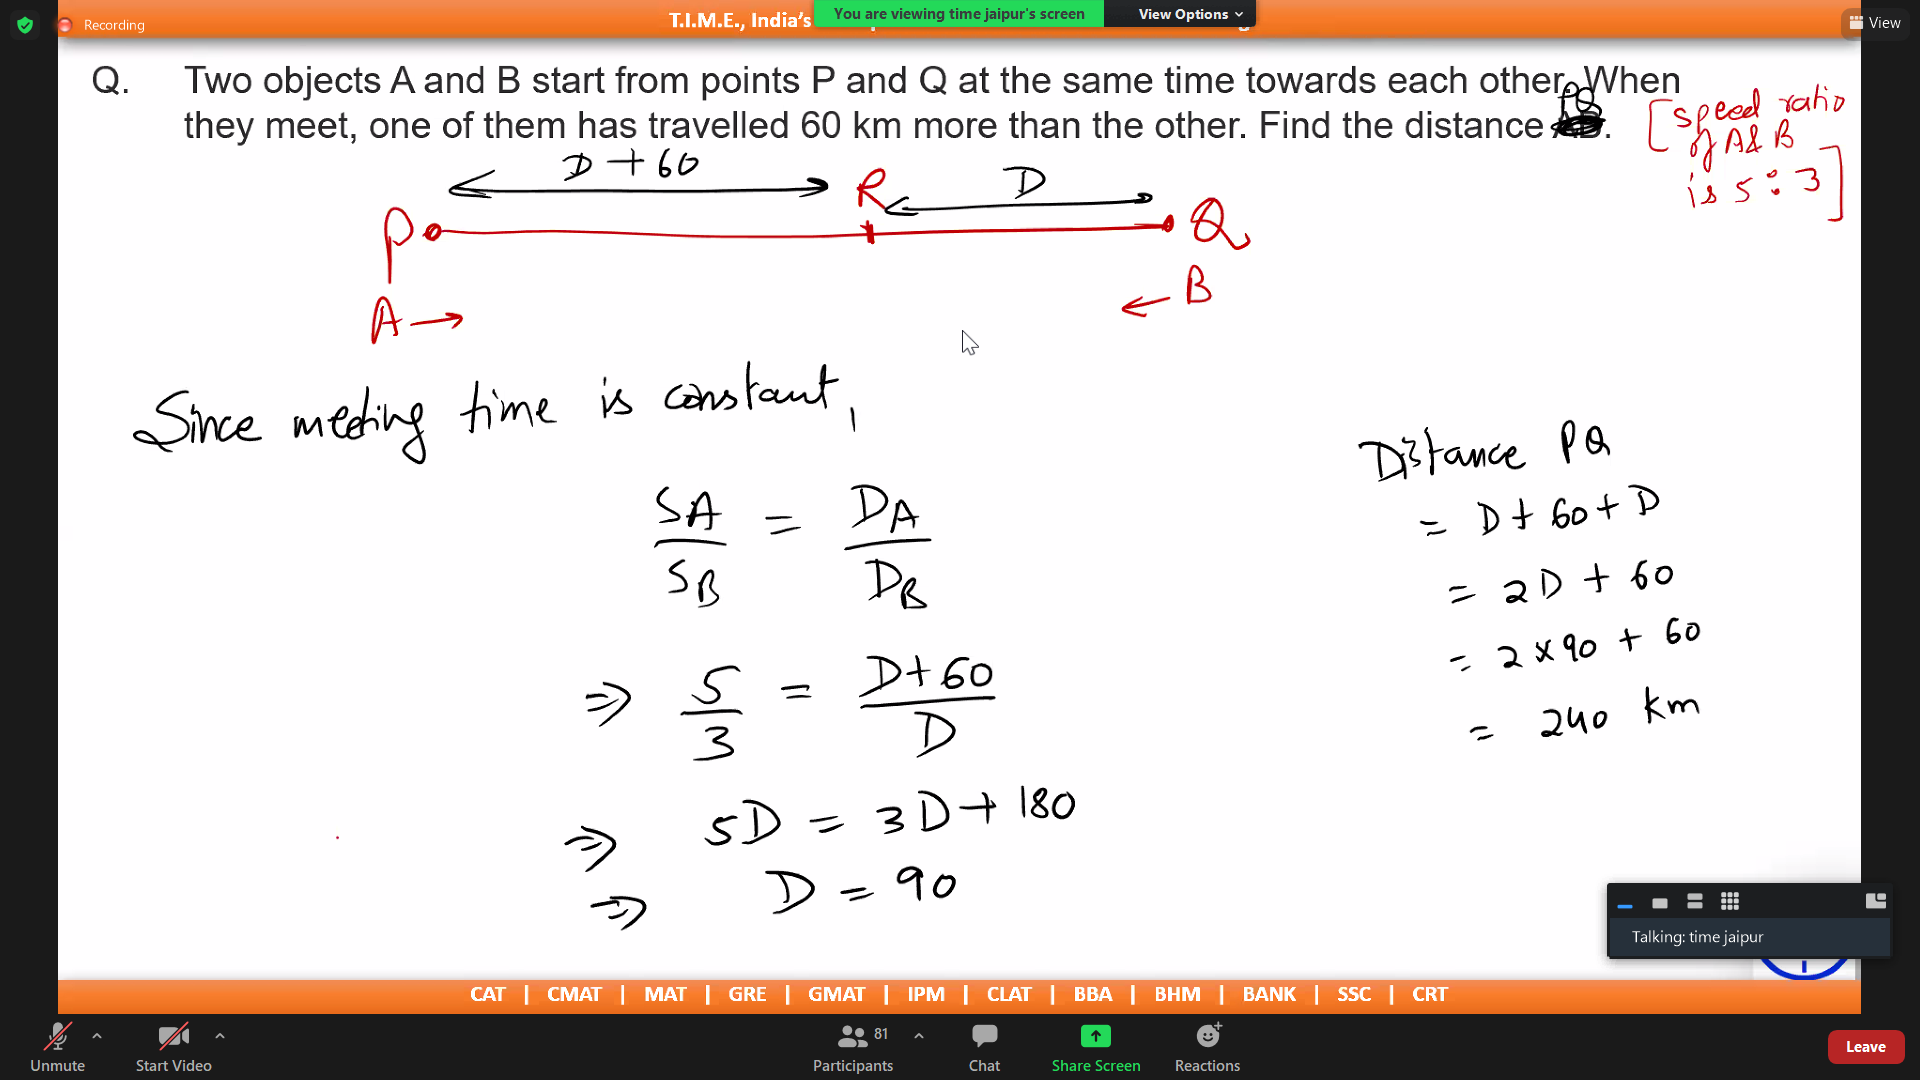 Recording
T.I.M.E., India's
You are viewing time jaipur's screen
View Options
View
Q. Two objects A and B start from points P and Q at the same time towards each other. When
they meet, one of them has travelled 60 km more than the other. Find the distance PQ.
[speed ratio
of A & B
is 5 : 3]
D + 60
R
D
P
Q
A →
← B
Since meeting time is constant,
SA/SB = DA/DB
⇒ 5/3 = D+60/D
⇒ 5D = 3D + 180
⇒ D = 90
Distance PQ
= D + 60 + D
= 2D + 60
= 2 × 90 + 60
= 240 km
Talking: time jaipur
CAT | CMAT | MAT | GRE | GMAT | IPM | CLAT | BBA | BHM | BANK | SSC | CRT
Unmute
Start Video
81
Participants
Chat
Share Screen
Reactions
Leave